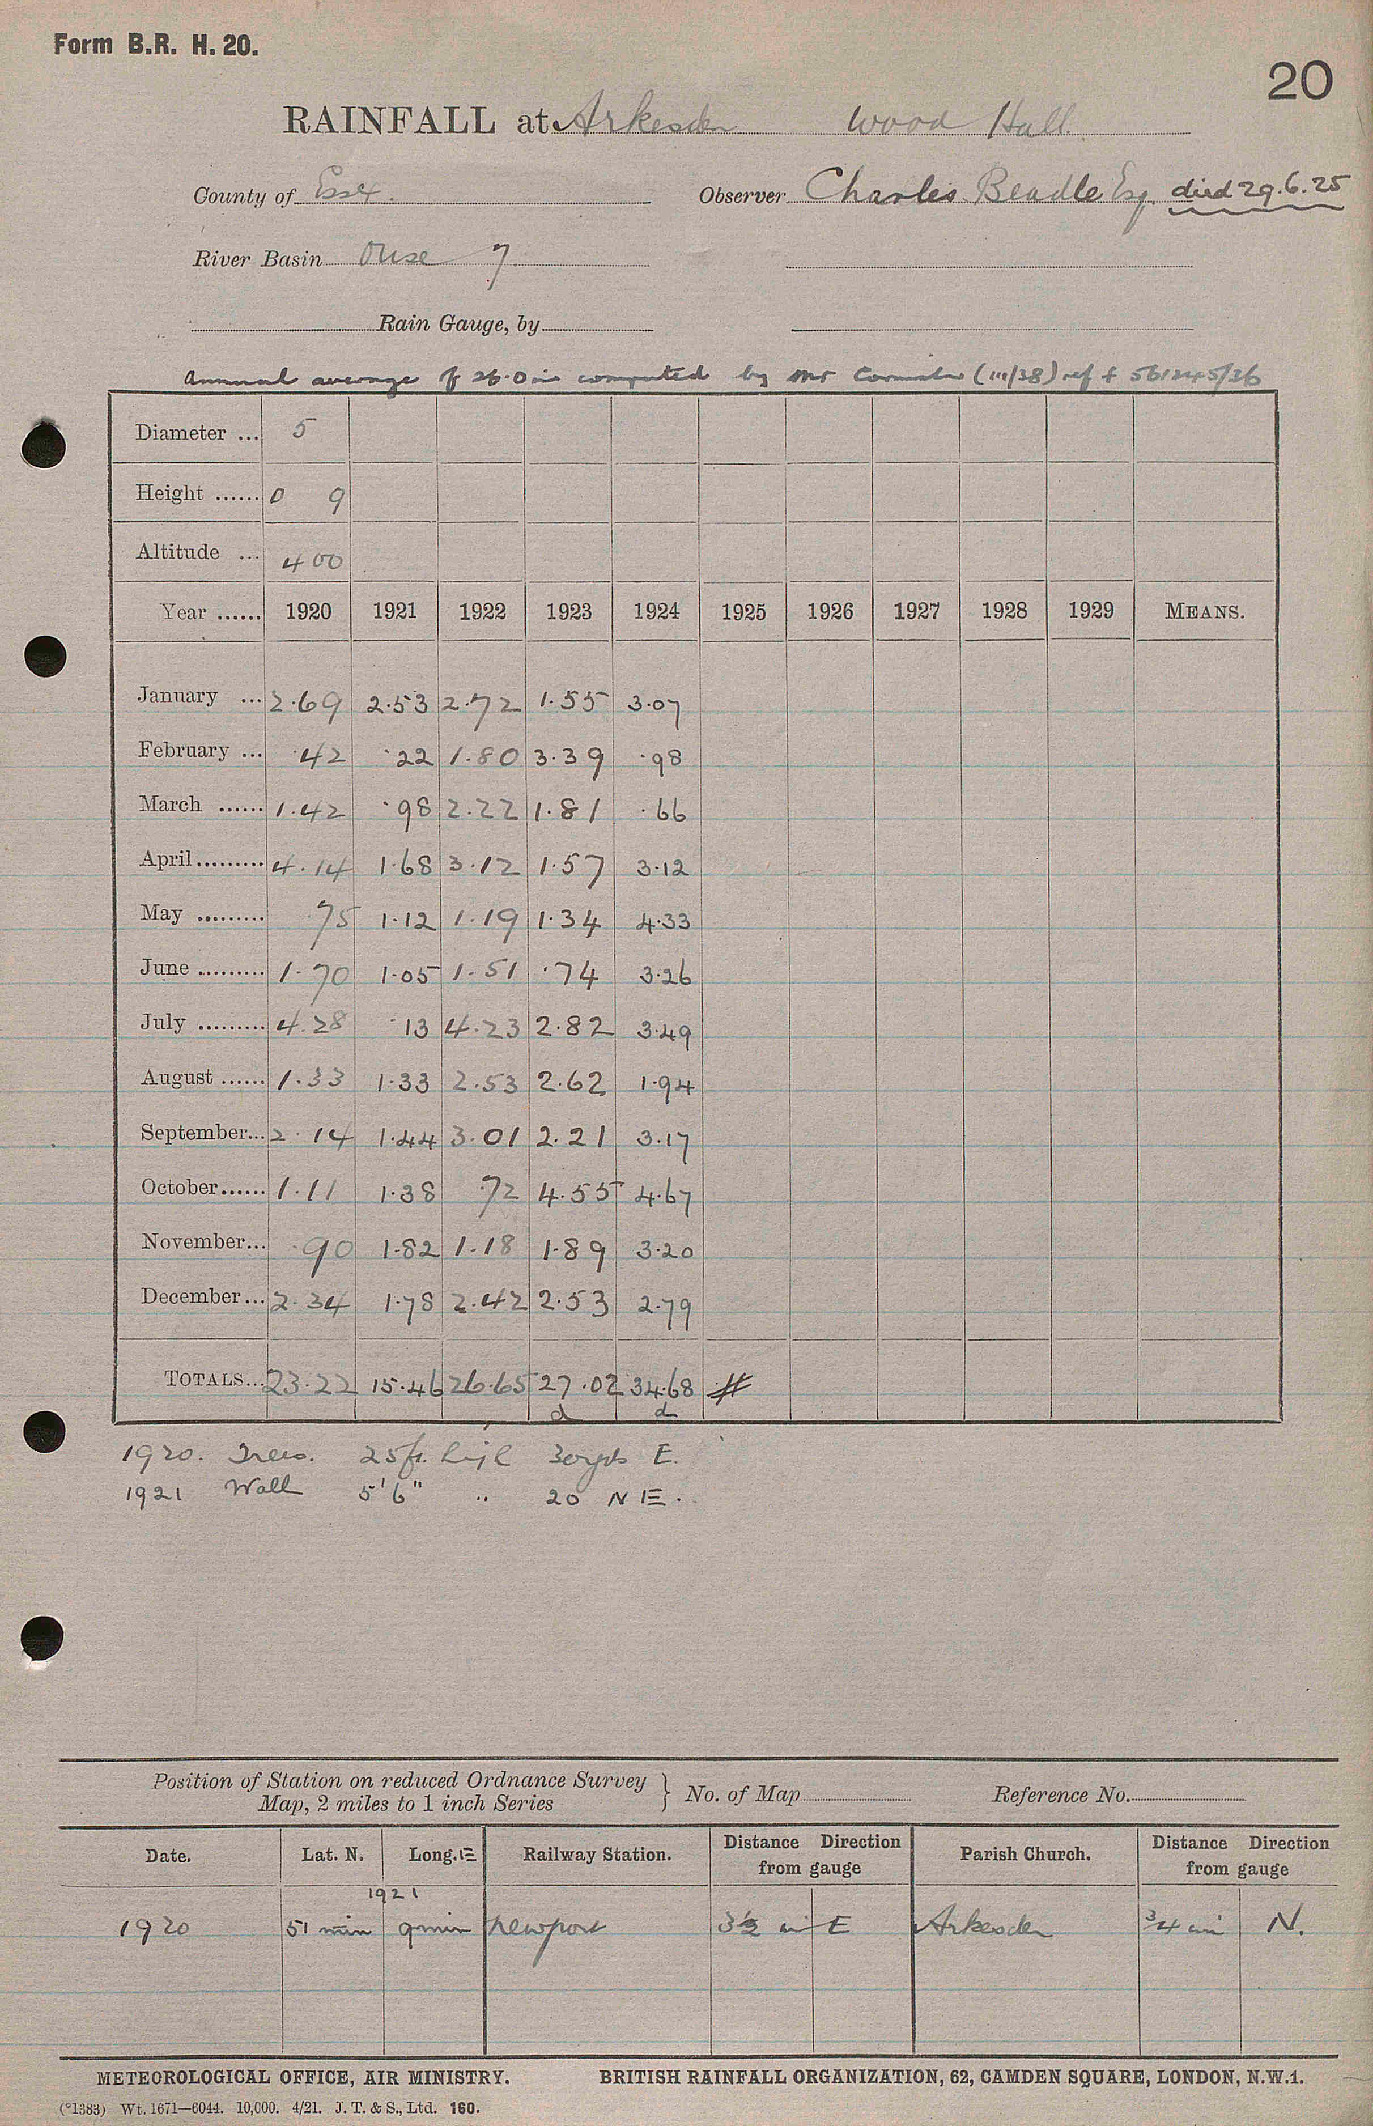 Form B.R. H. 20.
20
RAINFALL at Arkesden Wood Hall
County of Essex. Observer Charles Beadle Esq died 29.6.25
River Basin Ouse 7
Rain Gauge, by
Annual average of 26.0 in computed by Mr (III/38) ref
Diameter ... 5
Height ...... 0 9
Altitude ... 400
Year ...... 1920 1921 1922 1923 1924 1925 1926 1927 1928 1929 MEANS.
January ... 2.69 2.53 2.72 1.55 3.07
February ... .42 .22 1.80 3.39 .98
March ...... 1.42 .98 2.22 1.81 .66
April ......... 4.14 1.68 3.12 1.57 3.12
May ......... .75 1.12 1.19 1.34 4.33
June ......... 1.70 1.05 1.51 .74 3.26
July ......... 4.28 .13 4.23 2.82 3.49
August ...... 1.33 1.33 2.53 2.62 1.94
September... 2.14 1.44 3.01 2.21 3.17
October...... 1.11 1.38 .72 4.55 4.67
November... .90 1.82 1.18 1.89 3.20
December... 2.34 1.78 2.42 2.53 2.79
TOTALS... 23.22 15.46 26.65 27.02 34.68 #
d d
1920. Trees. 25ft. high 30yds E.
1921 Wall 5'6" " 20 NE.
Position of Station on reduced Ordnance Survey Map, 2 miles to 1 inch Series } No. of Map Reference No.
Date. Lat. N. Long. E Railway Station. Distance Direction from gauge Parish Church. Distance Direction from gauge
1921
1920 51 min 9 min Newport 3½ mi E Arkesden ¾ mi N.
METEOROLOGICAL OFFICE, AIR MINISTRY. BRITISH RAINFALL ORGANIZATION, 62, CAMDEN SQUARE, LONDON, N.W.1.
(*1383) Wt. 1671—6044. 10,000. 4/21. J. T. & S., Ltd. 160.